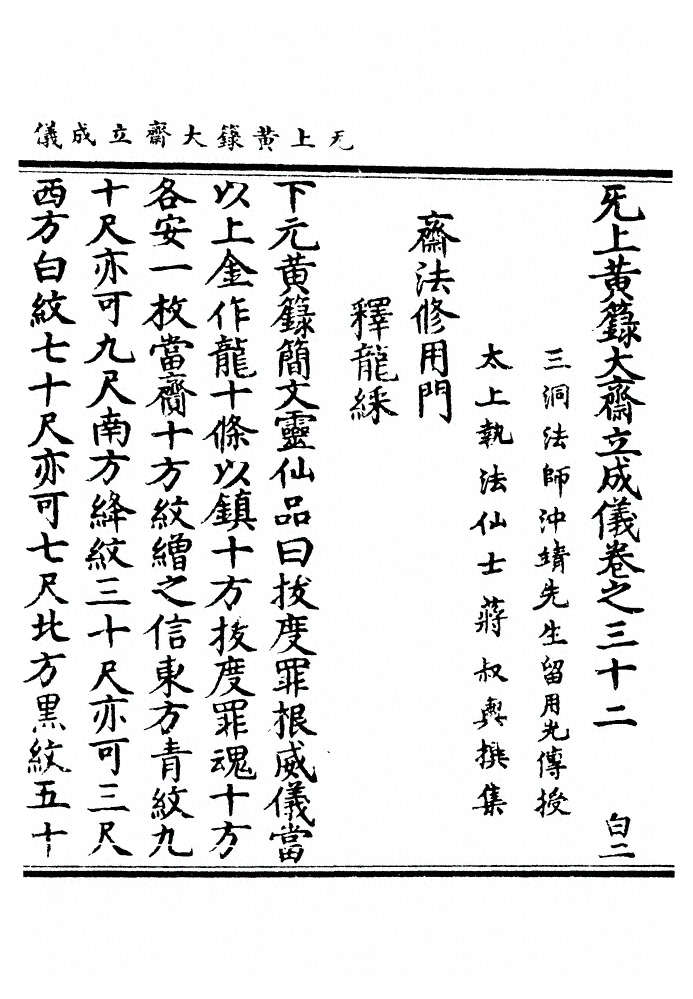 无上黃籙大齋立成儀
无上黃籙大齋立成儀卷之三十二 白二
三洞法師沖靖先生留用光傳授
太上執法仙士蔣叔輿撰集
齋法修用門
釋龍綵
下元黃籙簡文靈仙品曰拔度罪根威儀當
以上金作龍十條以鎮十方拔度罪魂十方
各安一枚當齎十方紋繒之信東方青紋九
十尺亦可九尺南方絳紋三十尺亦可三尺
西方白紋七十尺亦可七尺北方黑紋五十